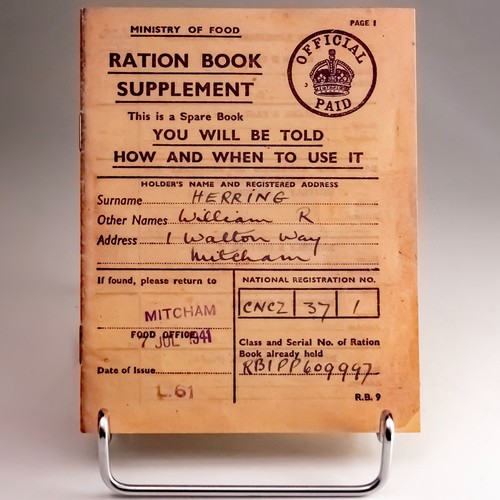 PAGE 1
MINISTRY OF FOOD
OFFICIAL PAID
RATION BOOK
SUPPLEMENT
This is a Spare Book
YOU WILL BE TOLD
HOW AND WHEN TO USE IT
HOLDER'S NAME AND REGISTERED ADDRESS
Surname HERRING
Other Names William R
Address 1 Walton Way
Mitcham
If found, please return to
MITCHAM
FOOD OFFICE
7 JUL 1941
Date of Issue
L.61
NATIONAL REGISTRATION NO.
CNCZ 37 1
Class and Serial No. of Ration
Book already held
RB1PP609997
R.B. 9